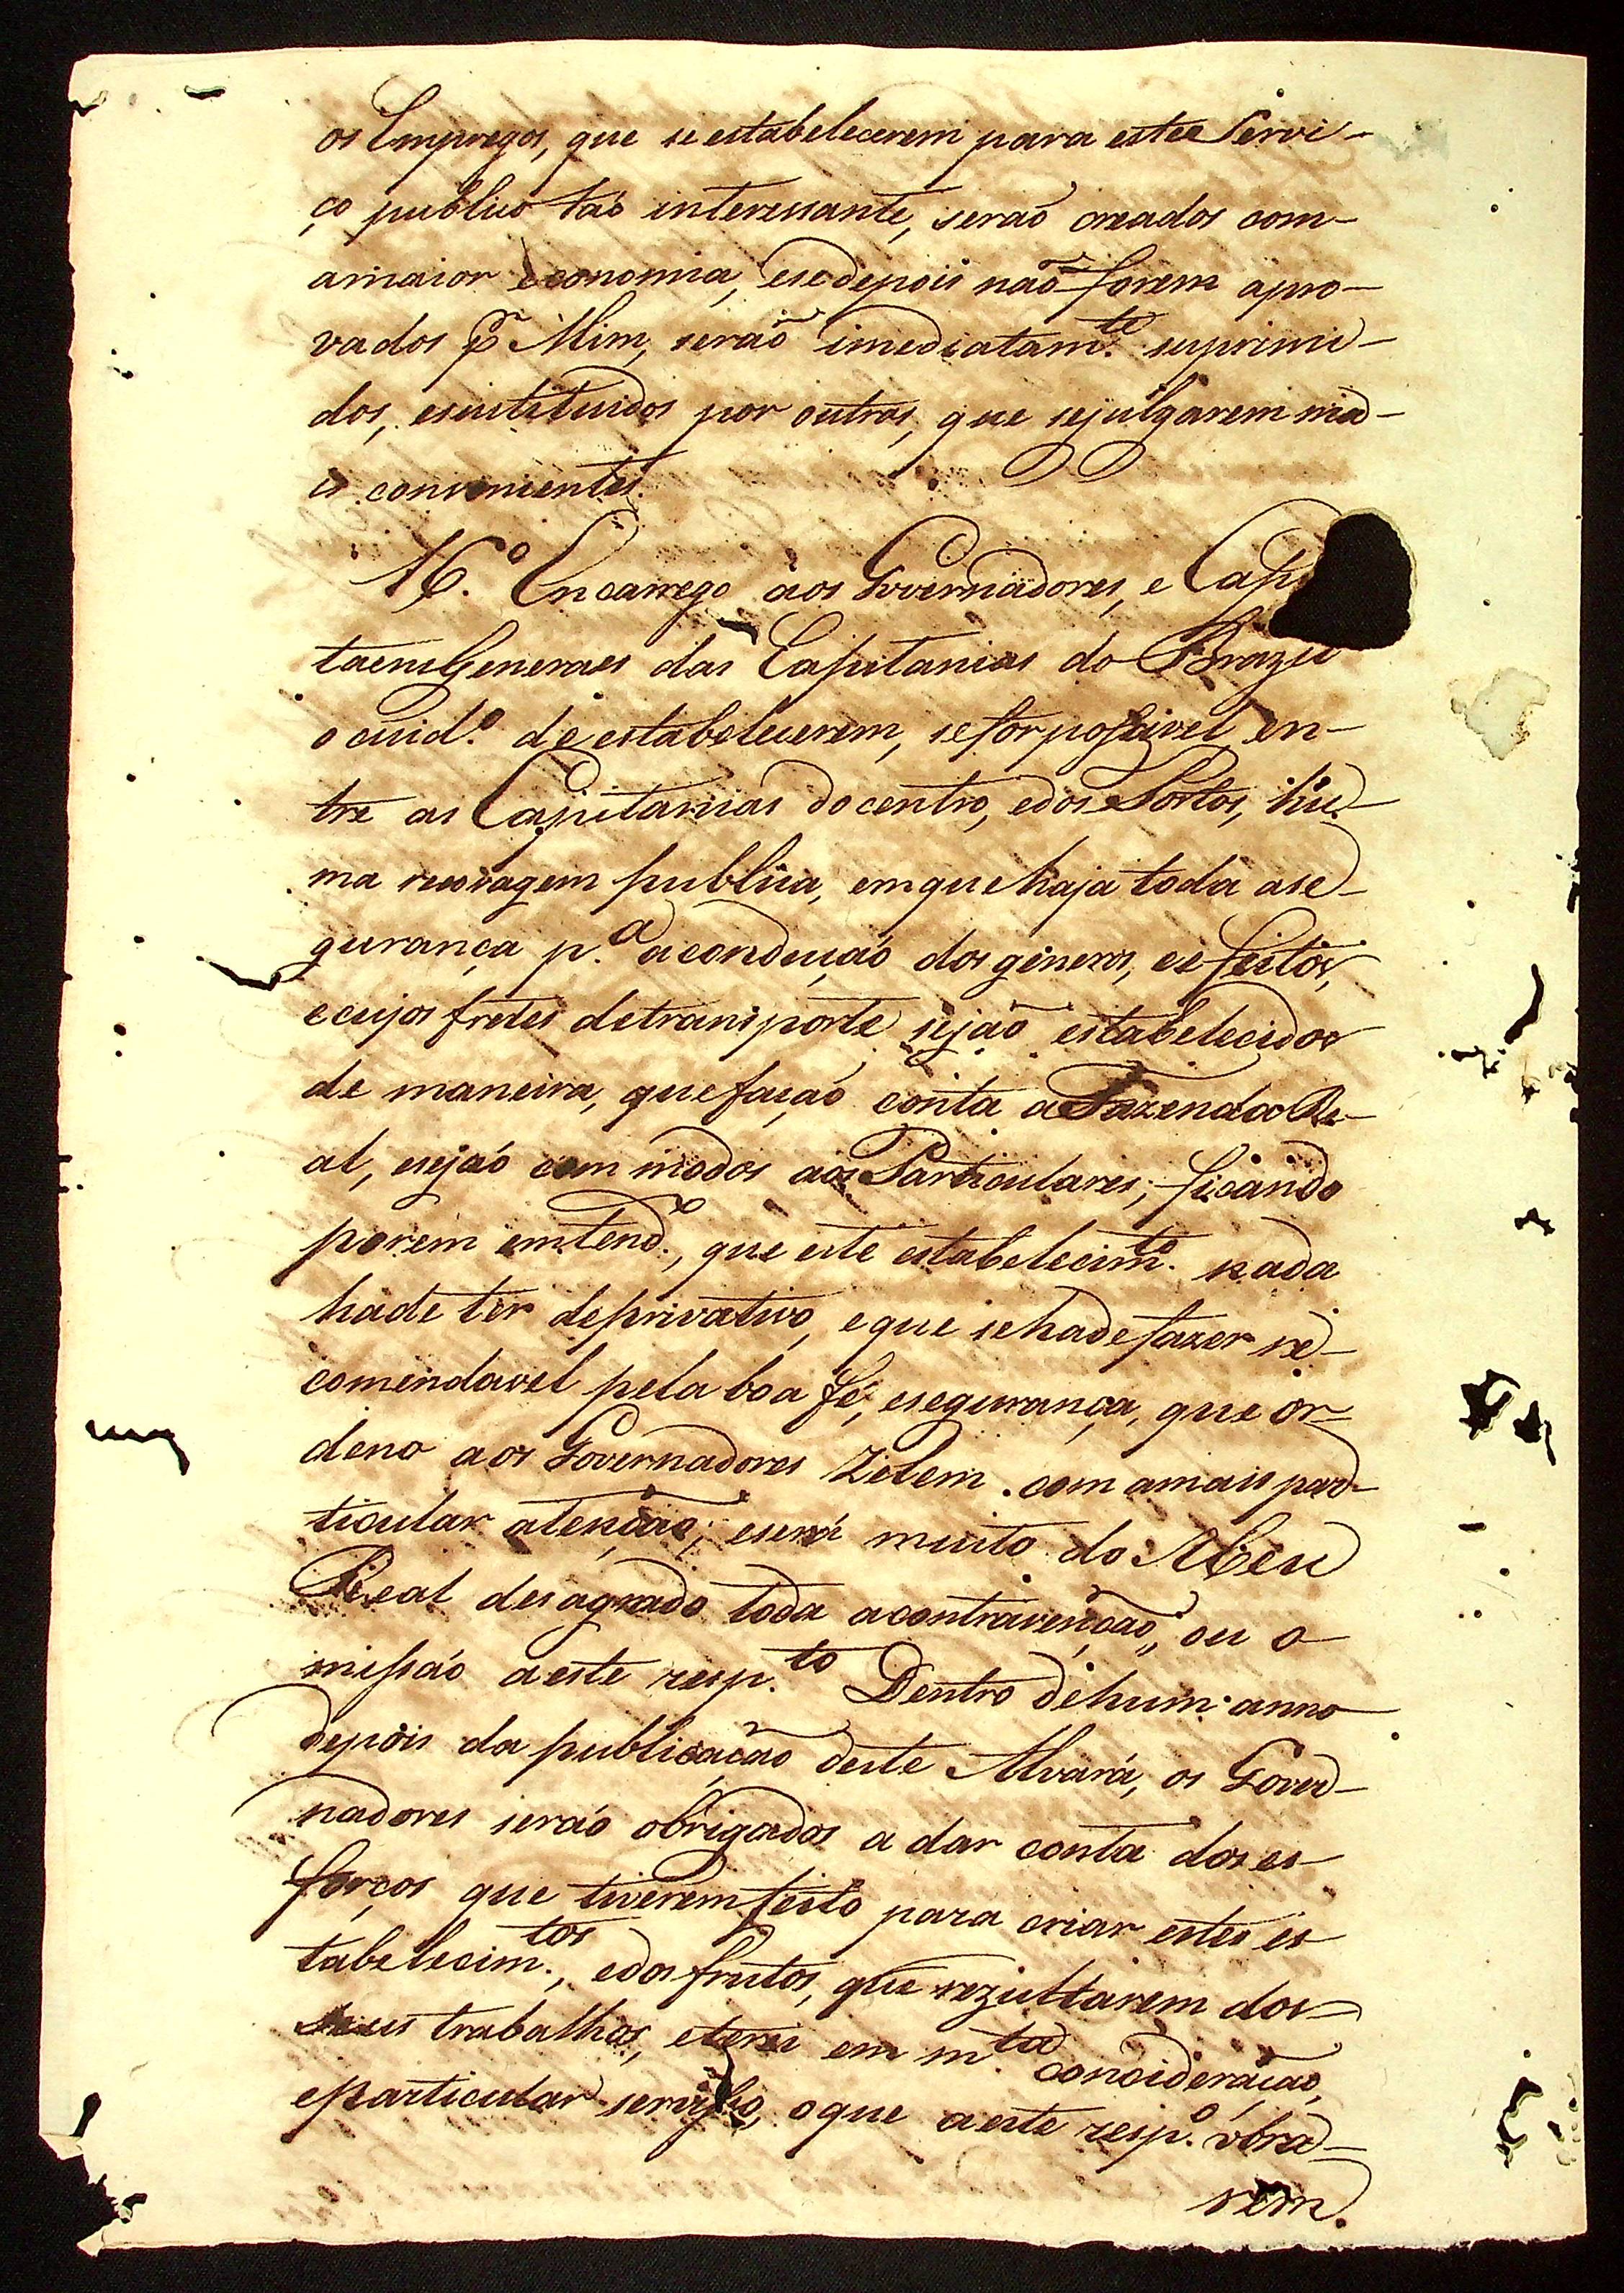 os Empregos, que se estabelecerem para este Servi-
ço publico taó interessante, seraõ creados com-
amaior economia, esedepois naõ forem apro-
vados p̃ Mim, seraõ imediatam.te suprimi-
dos, esustituidos por outros, que sejulgarem ma-
is convenientes.
16.º Encarrego aos Governadores, e Capi
taensGeneraes das Capitanias do Brazil
o cuid.º de estabelecerem, seforposſivel en-
tre as Capitanias do centro, edos Portos, hu-
ma recovagem publica, emquehaja toda ase-
gurança p.ª aconduçaó dos géneros, eefeitos,
ecujos fretes detransporte sejaõ estabelecidos
de maneira, quefaçaó conta aFazenda Re-
al, esejaó com modos aos Particulares; ficando
porém emtend.º, que este estabelecim.to nada
hade ter deprivativo, eque sehadefazer re-
comendavel pela boa fé, esegurança, que or=
deno aos Governadores Zelem com amais par-
ticular atençaõ; eserá muito do Meu
Real desagrado toda acontravençaõ, ou o-
misſaó aeste resp.to Dentro dehum anno
depois da publicaçaõ deste Alvará, os Gover-
nadores seraó obrigados a dar conta dos es-
forços que tiveremfeito para criar estes es
tabelecim.tos, edos frutos, que rezultarem dos
seus trabalhos, eterei em m.ta concideraçaõ,
eparticular serviço, oque aeste resp.º óbra-
rem.